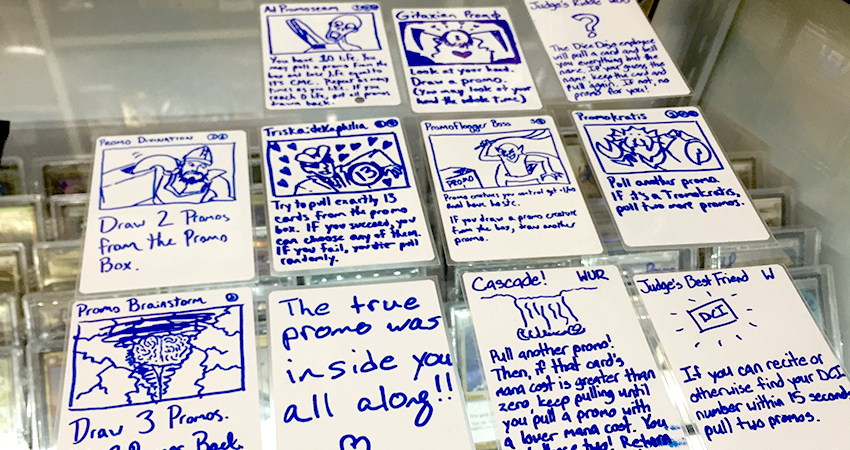 Ad Promoseam
You have 20 life. You
may pull a promo from the
box and lose life equal to
its CMC. Repeat as many
times as you like. If you
reach 0 life, put all promos
drawn back.
Gitaxian Promot
Look at your hand.
Draw a promo.
(You may look at your
hand the whole time)
Judge's Riddle
?
The Dice Dojo employee
will pull a card and tell
you everything but the
name. If you guess the
name, keep the card and
pull again. If not, no
promo for you!
Promo Divination
Draw 2 Promos
from the Promo
Box.
Triskaidekaphilia
13
Try to pull exactly 13
cards from the promo
box. If you succeed, you
can choose any of them.
If you fail, you die pull
randomly.
Promoflogger Boss
PROMO
Promo creatures you control get +1/+0
and have haste.
If you draw a promo creature
from the box, draw another
promo.
Promokratis
Pull another promo.
If it's a Tromokratis,
pull two more promos.
Promo Brainstorm
Draw 3 Promos.
Back.
The true
promo was
inside you
all along!!
Cascade! WUR
Pull another promo!
Then, if that card's
mana cost is greater than
zero, keep pulling until
you pull a promo with
a lower mana cost. You
two! Return
Judge's Best Friend W
DCI
If you can recite or
otherwise find your DCI
number within 15 seconds
pull two promos.